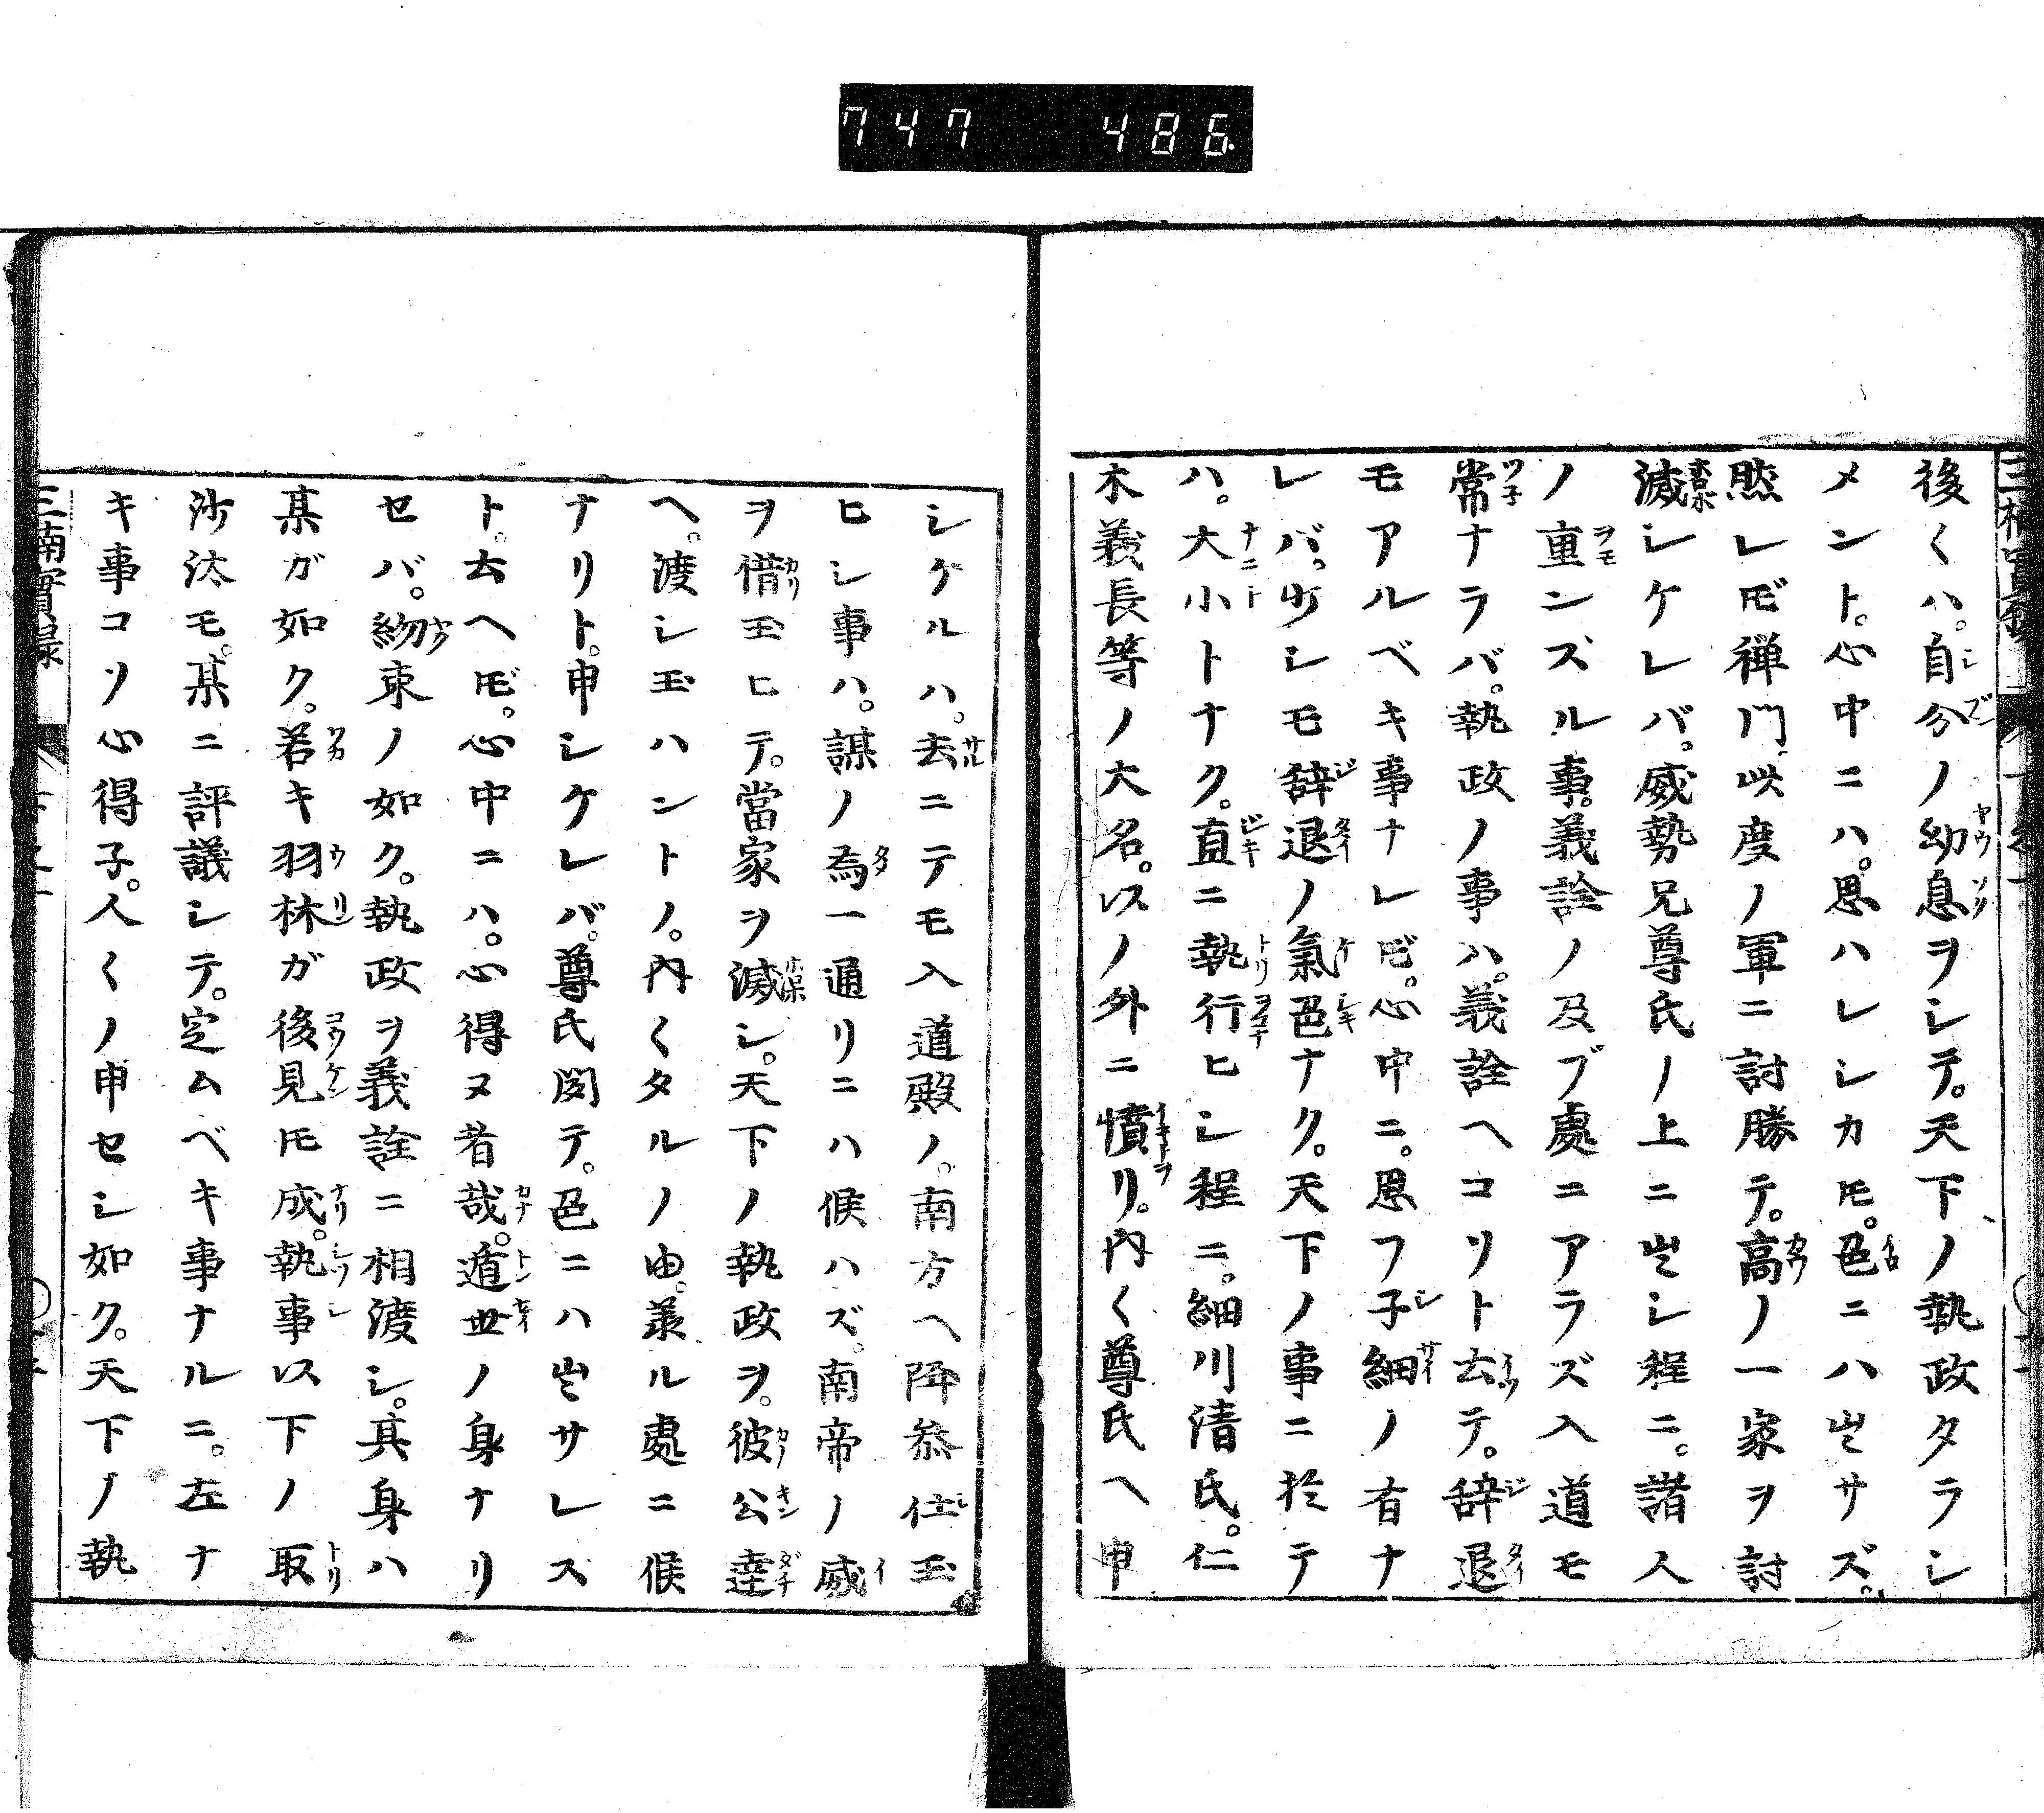 747 486
後くハ。自分ノ幼息ヲシテ。天下ノ執政タラシ
メント。心中ニハ。思ハレシカ𪜈。色ニハ出サズ。
然レ𪜈禅門。此度ノ軍ニ討勝テ。高ノ一家ヲ討
滅シケレバ。威勢兄尊氏ノ上ニ出シ程ニ。諸人
ノ重ンズル事。義詮ノ及ブ處ニアラズ入道モ
常ナラバ。執政ノ事ハ。義詮ヘコソト云テ。辞退
モアルベキ事ナレ𪜈。心中ニ。思フ子細ノ有ナ
レバ。少シモ辞退ノ氣色ナク。天下ノ事ニ於テ
ハ。大小トナク。直ニ執行ヒシ程ニ。細川清氏。仁
木義長等ノ大名。以ノ外ニ憤リ。内く尊氏ヘ申
シケルハ。去ニテモ入道殿ノ。南方ヘ降参仕玉
ヒシ事ハ。謀ノ為一通リニハ候ハズ。南帝ノ威
ヲ借玉ヒテ。當家ヲ滅シ。天下ノ執政ヲ。彼公達
ヘ。渡シ玉ハントノ。内くタルノ由。承ル處ニ候
ナリト。申シケレバ。尊氏聞テ。色ニハ出サレズ
ト。云ヘ𪜈。心中ニハ。心得ヌ者哉。遁世ノ身ナリ
セバ。約束ノ如ク。執政ヲ義詮ニ相渡シ。其身ハ
某ガ如ク。若キ羽林ガ後見𪜈成。執事以下ノ取
沙汰モ。某ニ評議シテ。定ムベキ事ナルニ。左ナ
キ事コソ心得子。人くノ申セシ如ク。天下ノ執